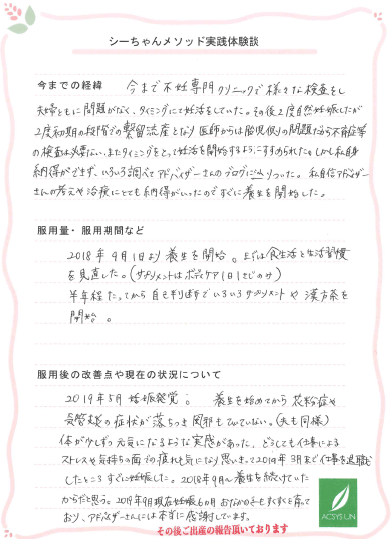 シーちゃんメソッド実践体験談
今までの経緯
今まで不妊専門クリニックで様々な検査をし
夫婦ともに問題がなく、タイミングにて妊活をしていた。その後2度自然妊娠したが
2度初期の段階での繋留流産となり医師からは胎児側の問題だから不育症等
の検査は必要ない、またタイミングをとって妊活を開始するようにすすめられた。しかし私自身
納得ができず、いろいろ調べてアドバイザーさんのブログに辿りついた。私自信アドバイザー
さんの考えや治療にとても納得がいったのですぐに養生を開始した。
服用量・服用期間など
2018年9月1日より養生を開始。まずは食生活と生活習慣
を見直した。(サプリメントはボディケア1日1さじのみ)
半年程たってから自己判断でいろいろサプリメントや漢方茶を
開始。
服用後の改善点や現在の状況について
2019年5月妊娠発覚。養生を始めてから花粉症や
気管支炎の症状が落ちつき風邪もひいていない。(夫も同様)
体が少しずつ元気になるような実感があった。どうしても仕事による
ストレスや気持ちの面での疲れも気になり思いきって2019年3月末で仕事を退職
したところすぐに妊娠した。2018年9月から養生を続けていた
からだと思う。2019年9月現在妊娠6ヵ月おなかの子もすくすくと育って
おり、アドバイザーさんには本当に感謝しています。
その後ご出産の報告頂いております
ACSYS UN